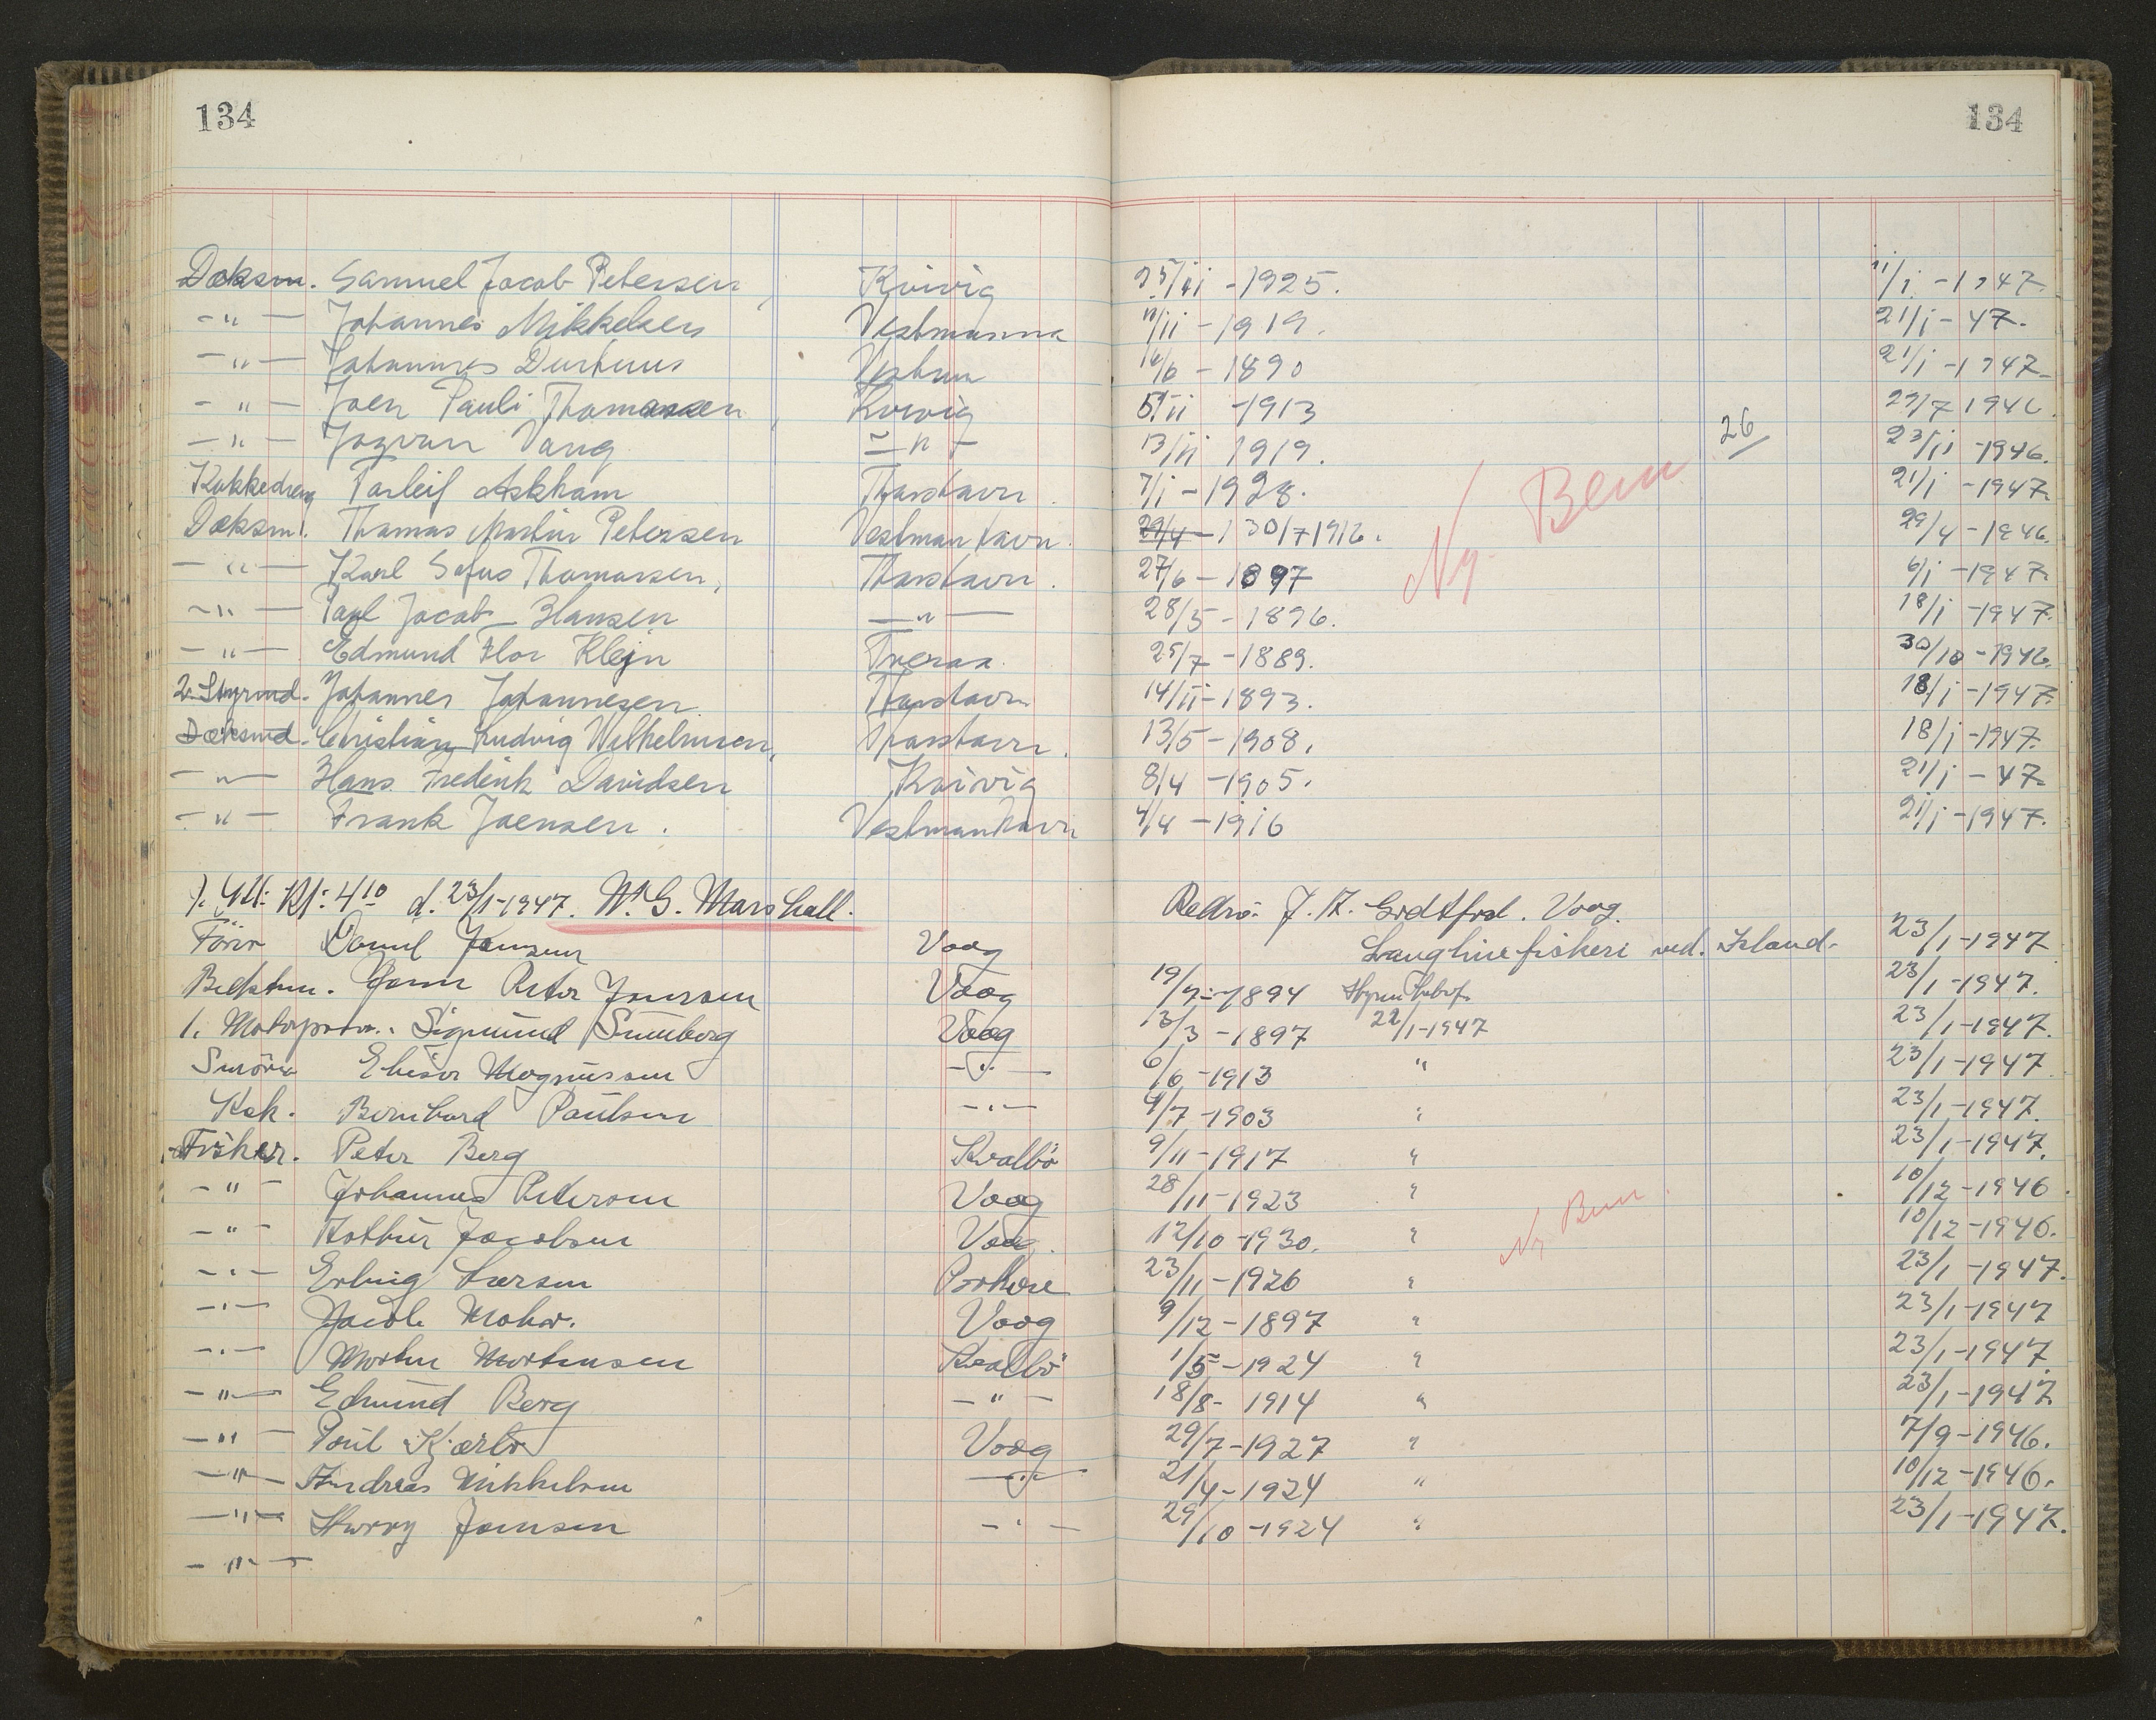 134 134
Dæksm. Samuel Jacob Petersen Kvivig 25/11 -1925. 21/1 -1947.
-"- Johannes Mikkelsen Vestmanna 11/11 -1919. 21/1 - 47.
-"- Johannes Durhuus Vestm 16/6 -1890 21/1 -1947
-"- Joen Pauli Thomassen Kvivig 5/11 -1913 27/7 1946.
-"- Jógvan Vang -"- 13/11 1919. 26 23/11 -1946.
Kokkedreng Torleif Askham Thorshavn. 7/1 -1928. Ny Bem 21/1 -1947.
Dæksm. Thomas Martin Petersen Vestmanhavn. 29/4 - 1 30/7 1916. 29/4 -1946.
-"- Karl Sofus Thomassen, Thorshavn. 27/6 -1897 6/1 -1947.
-"- Jacob Hansen -"- 28/5 -1896. 18/1 -1947.
-"- Edmund Flor Klejn Tveraa. 25/7 -1889. 30/10 -1946.
2. Styrmd. Johannes Johannesen Thorshavn 14/11 -1893. 18/1 -1947.
Dæksmd. Christian Ludvig Wilhelmsen, Thorshavn. 13/5 -1908. 18/1 -1947.
-"- Hans Frederik Davidsen Kvivig 8/4 -1905. 21/1 - 47
-"- Frank Joensen. Vestmanhavn 4/4 -1916 21/1 -1947.
Kl: 4 10 d. 23/1-1947. W. G. Marshall. Redri: Voag.
Förer Joensen Voag Langlinefiskeri ved. Island. 23/1-1947
Bedstm. Peter Joensen Voag 19/7-1894 23/1-1947.
1. Motorpass. Sigmund Sumberg Voag 13/3 -1897 22/1-1947 23/1-1947.
Smörer Magnussen -"- 6/6 -1913 " 23/1-1947
Kok. Bernhard Poulsen -"- 4/7 -1903 " 23/1-1947.
Fisker. Peter Berg Kvalbö 9/11-1917 " 23/1-1947.
-"- Johannes Petersen Voag 28/11-1923 " 10/12-1946.
-"- Jacobsen Voag. 12/10-1930. " Ny Bem. 10/12-1946.
-"- Erling Larsen Porkere 23/11-1926 " 23/1-1947.
-"- Jacob Mohr. Voag 9/12-1897 " 23/1-1947
-"- Morten Mortensen Kvalbö 1/5-1924 " 23/1-1947
-"- Edmund Berg -"- 18/8- 1914 " 23/1-1947
-"- Poul Kjærbo Voag 29/7-1927 " 7/9-1946.
-"- Andreas Mikkelsen -"- 21/4-1924 " 10/12-1946.
-"- Harry Joensen -"- 29/10-1924 " 23/1-1947.
-"-